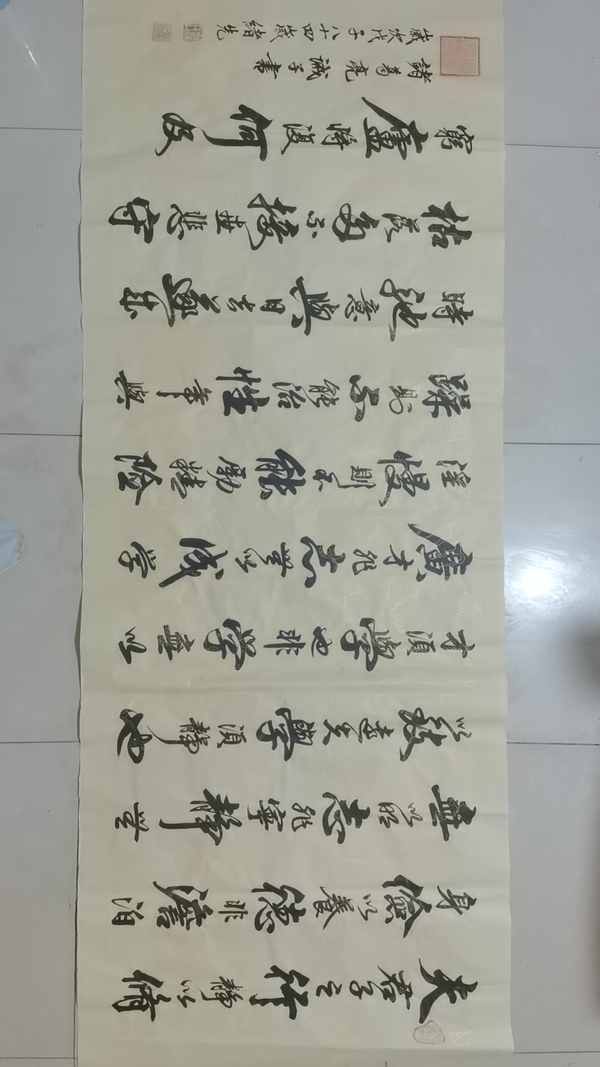 夫君子之行靜以脩
身儉以養德非澹泊
無以明志非寧靜無
以致遠夫學須靜也
才須學也非學無以
廣才非志無以成学
淫慢則不能勵精險
躁則不能治性年與
時馳意與日去遂成
枯落多不接世悲守
窮廬將復何及
諸葛亮誡子書
歲次戊子八十四歲緒光